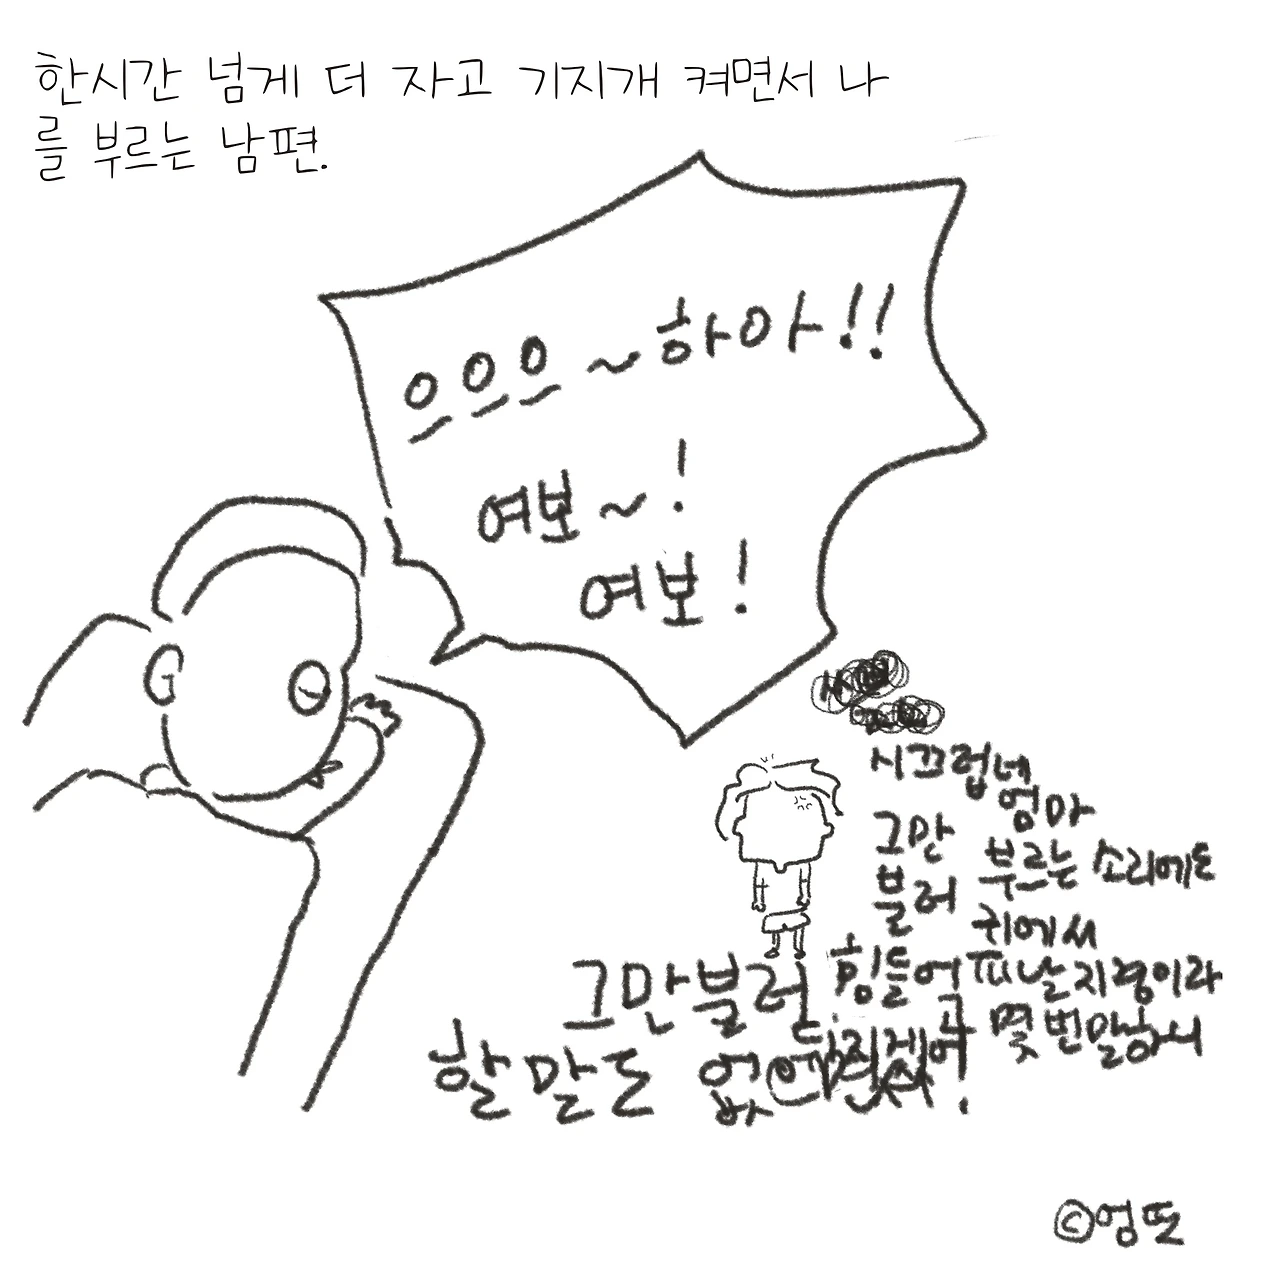 한시간 넘게 더 자고 기지개 켜면서 나
를 부르는 남편.
으으으~하아!!
여보~!
여보!
시끄럽네
엄마
부르는 소리에도
귀에서
피날지경이라
고 몇번말하니
그만
불러
힘들어
그만불러
할말도 없으면서!
©영또